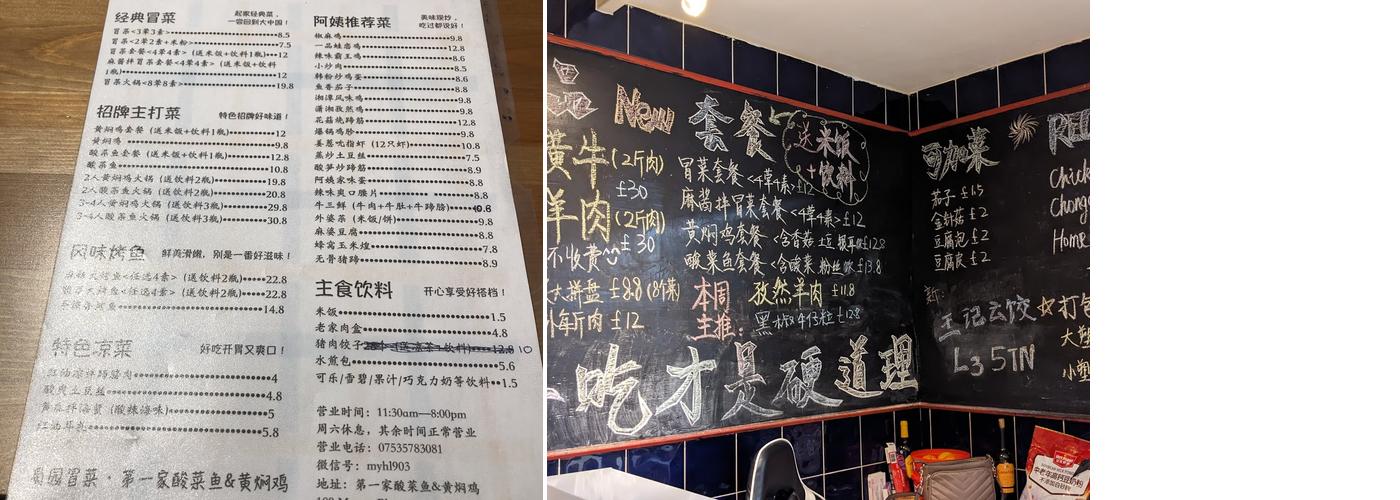 经典冒菜
起家经典菜，
一尝回到大中国！
冒菜<3荤3素>8.5
冒菜<2荤2素+米粉>7.5
冒菜套餐<4荤4素>（送米饭+饮料1瓶）12
麻酱拌冒菜套餐<4荤4素>（送米饭+饮料
1瓶）12
冒菜火锅<8荤8素>19.8
招牌主打菜
特色招牌好味道！
黄焖鸡套餐（送米饭+饮料1瓶）12
黄焖鸡9.8
酸菜鱼套餐（送米饭+饮料1瓶）12.8
酸菜鱼10.8
2人黄焖鸡火锅（送饮料2瓶）19.8
2人酸菜鱼火锅（送饮料2瓶）20.8
3-4人黄焖鸡火锅（送饮料3瓶）29.8
3-4人酸菜鱼火锅（送饮料3瓶）30.8
风味烤鱼
鲜美滑嫩，别是一番好滋味！
<任选4素>（送饮料2瓶）22.8
<任选4素>（送饮料2瓶）22.8
14.8
特色凉菜
好吃开胃又爽口！
红油凉拌猪肉4
酸爽土豆丝4.8
凉拌海蜇（酸辣海味）5
红油耳丝5.8
蜀园冒菜·第一家酸菜鱼&黄焖鸡
阿姨推荐菜
美味现炒，
吃过都说好！
椒麻鸡9.8
一品蛙恋鸡12.8
辣味霸王鸡8.6
小炒肉8.5
韩粉炒鸡蛋8.6
鱼香茄子8.8
湘潭风味鸡9.8
潇湘孜然鸡9.8
花菇烧蹄筋12.8
爆锅鸡胗9.8
姜葱吮指虾（12只虾）10.8
蒸炒土豆丝7.5
酸笋炒蹄筋8.9
阿姨家味蛋8.8
辣味爽口腰片8.8
牛三鲜（牛肉+牛肚+牛蹄筋）10.8
外婆菜（米饭/饼）9.8
麻婆豆腐8.8
蜂窝玉米煌7.8
无骨猪蹄8.9
主食饮料
开心享受好搭档！
米饭1.5
老家肉盒4.8
猪肉饺子12.8 10
水煎包5.6
可乐/雪碧/果汁/巧克力奶等饮料1.5
营业时间：11:30am—8:00pm
周六休息，其余时间正常营业
营业电话：07535783081
微信号：myhl903
地址：第一家酸菜鱼&黄焖鸡
New
黄牛(2斤肉)
£30
羊肉(2斤肉)
£30
不收费^^
大拼盘 £8.8(8个菜)
每斤肉 £12
套餐
送米饭
+饮料
冒菜套餐<4荤4素>£12
麻酱拌冒菜套餐<4荤4素>£12
黄焖鸡套餐<含香菇 土豆 £12.8
酸菜鱼套餐<含酸菜 粉丝 £13.8
本周
主推：
孜然羊肉 £11.8
黑椒牛仔粒 £12.8
吃才是硬道理
可加菜
茄子 £1.5
金针菇 £2
豆腐泡 £2
豆腐皮 £2
新:
王记云饺
L35TN
Chick
Chong
Home
☆打包
大塑
小塑
中老年高钙豆奶粉